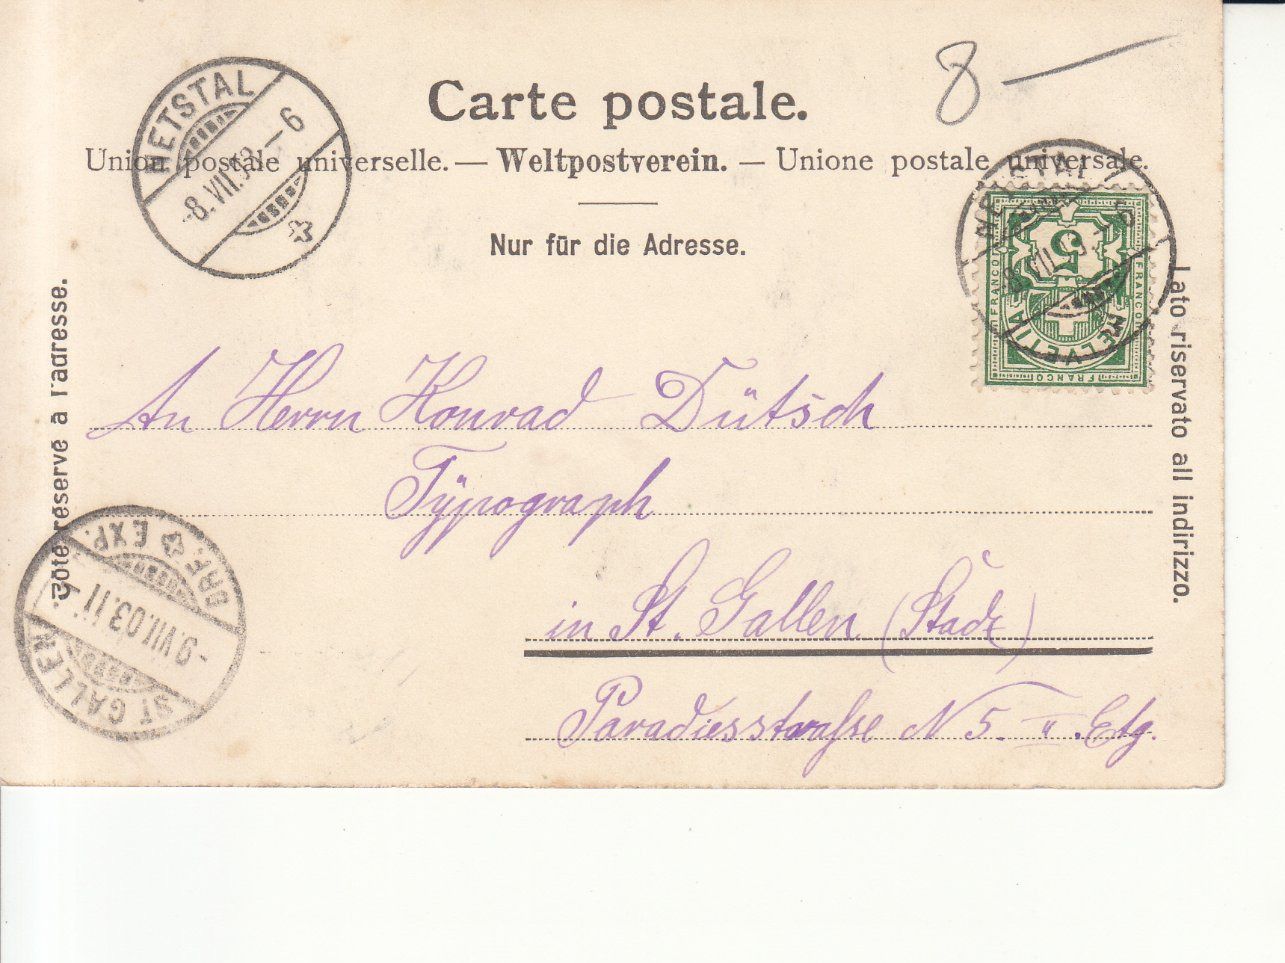 8 —
Carte postale.
Union postale universelle. — Weltpostverein. — Unione postale universale.
Nur für die Adresse.
NETSTAL
-8.VII.03 — 6
NETSTAL
VII
5
FRANCO
FRANCO
FRANCO
HELVETIA
Côté réservé à l'adresse.
Lato riservato all indirizzo.
An Herrn Konrad Dütsch
Typograph
in St. Gallen (Stadt)
Paradiesstrasse N 5. II. Etg.
ST. GALLEN
-9.VII.03.11.
BRF. EXP.